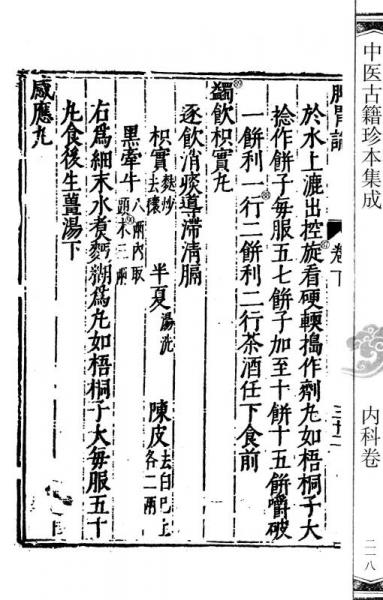 中医古籍珍本集成
内科卷
二一八
脾胃論
卷下
於水上漉出控旋看硬輭搗作劑丸如梧桐子大
捻作餅子每服五七餅子加至十餅十五餅嚼破
一餅利一行二餅利二行茶酒任下食前
蠲飲枳實丸
逐飲消痰導滯清膈
枳實麩炒去穰 半夏湯洗 陳皮去白巳上各二兩
黑牽牛八兩內取頭末三兩
右爲細末水煮麪糊爲丸如梧桐子大每服五十
丸食後生薑湯下
感應丸